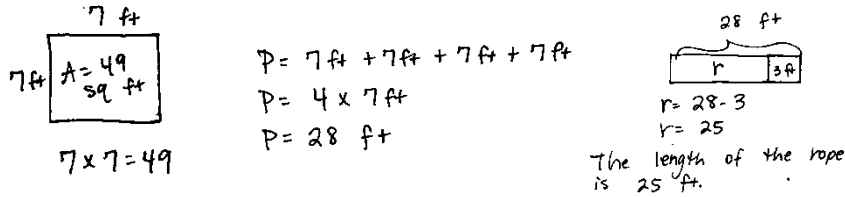 7 ft
7 ft
A = 49
sq ft
7 x 7 = 49
P = 7 ft + 7 ft + 7 ft + 7 ft
P = 4 x 7 ft
P = 28 ft
28 ft
r
3 ft
r = 28 - 3
r = 25
The length of the rope
is 25 ft.